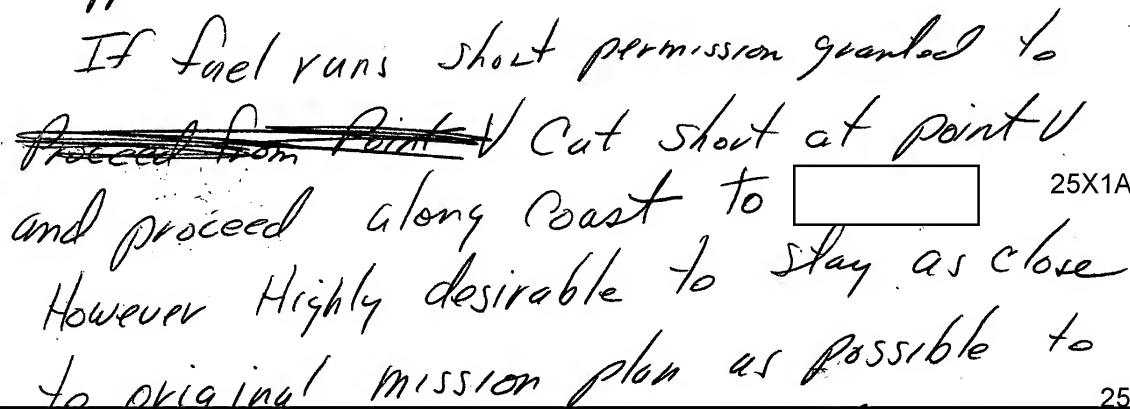 If fuel runs short permission granted to
Proceed from Point V Cut short at point V
and proceed along Coast to 25X1A
However Highly desirable to stay as close
to original mission plan as possible to
25